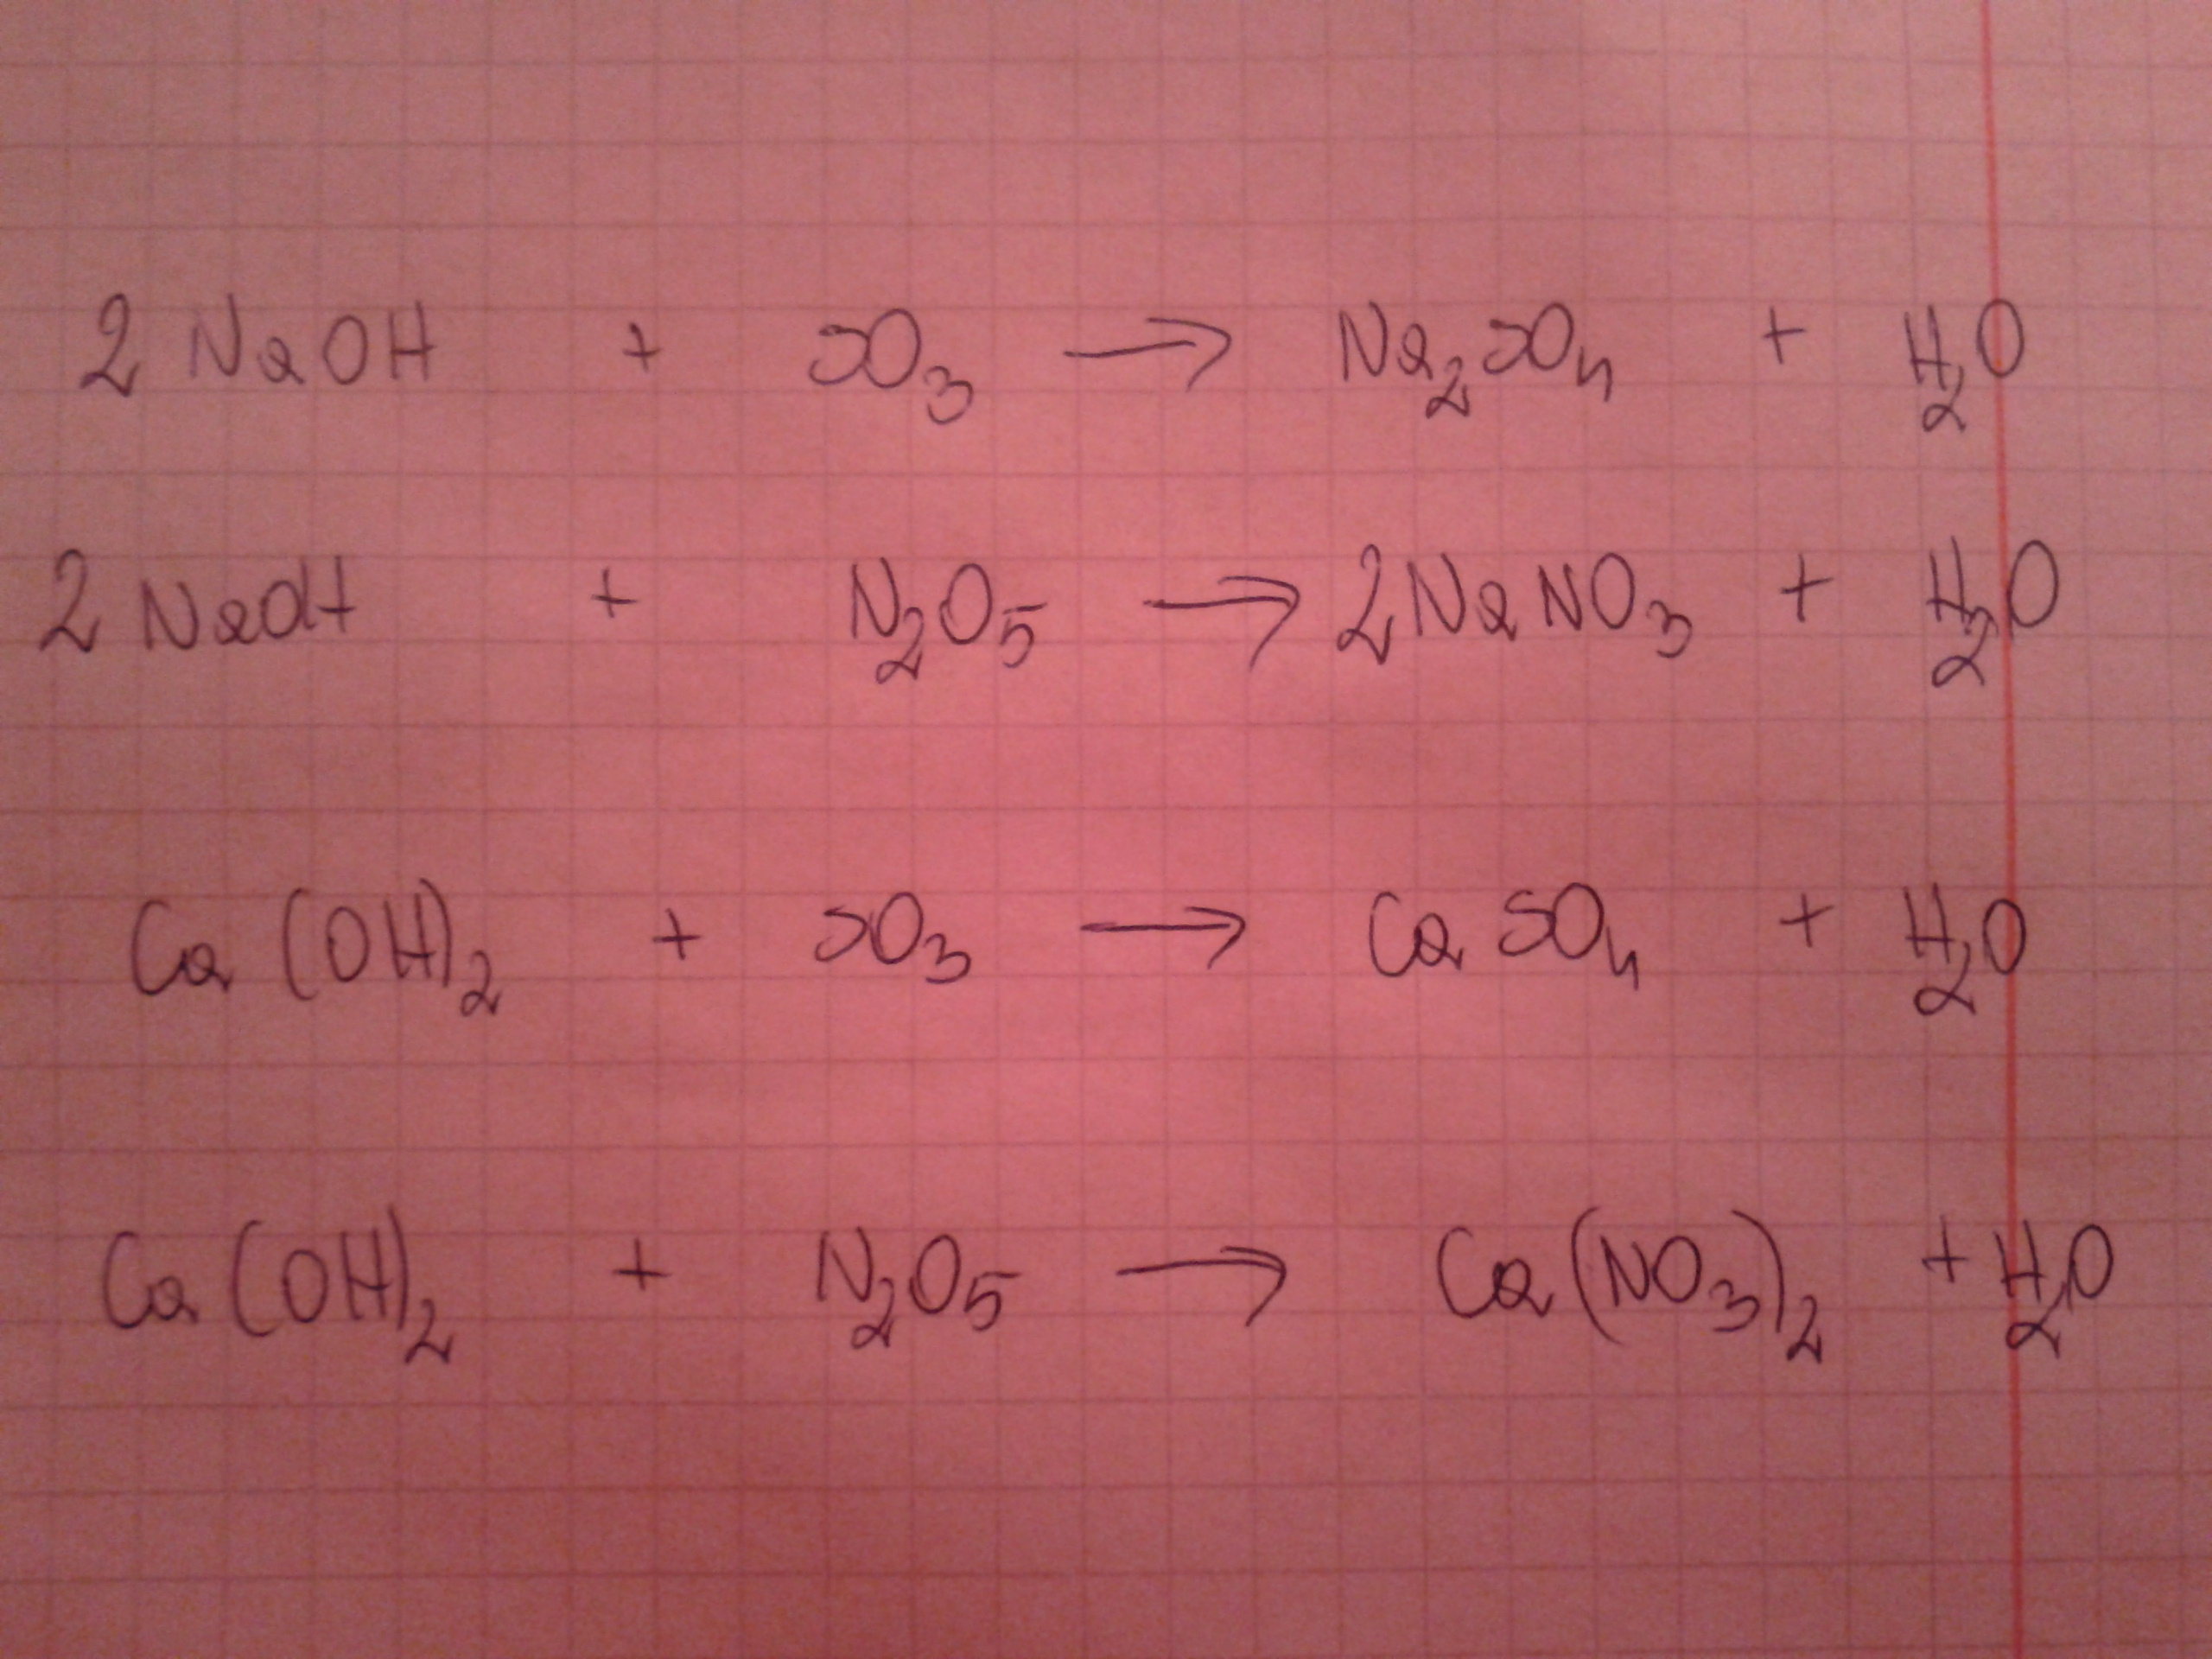 2 NaOH + SO₃ → Na₂SO₄ + H₂O
2 NaOH + N₂O₅ → 2 NaNO₃ + H₂O
Ca(OH)₂ + SO₃ → CaSO₄ + H₂O
Ca(OH)₂ + N₂O₅ → Ca(NO₃)₂ + H₂O